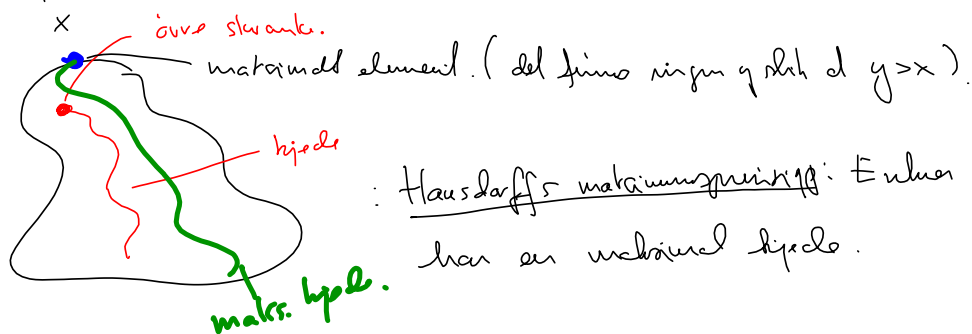 x
øvre skranke.
maksimalt element. (det finns ingen y slik at y>x).
kjede
: Hausdorffs maksimumsprinsipp: Enhver
har en maksimal kjede.
maks. kjede.